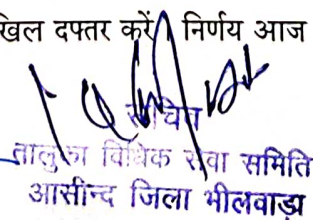 खिल दफ्तर करें। निर्णय आज
सचिव
तालुका विधिक सेवा समिति
आसीन्द जिला भीलवाडा